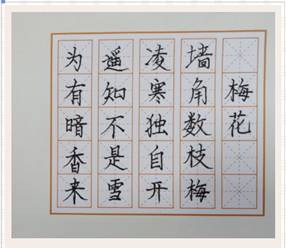 梅花
墙角数枝梅
凌寒独自开
遥知不是雪
为有暗香来